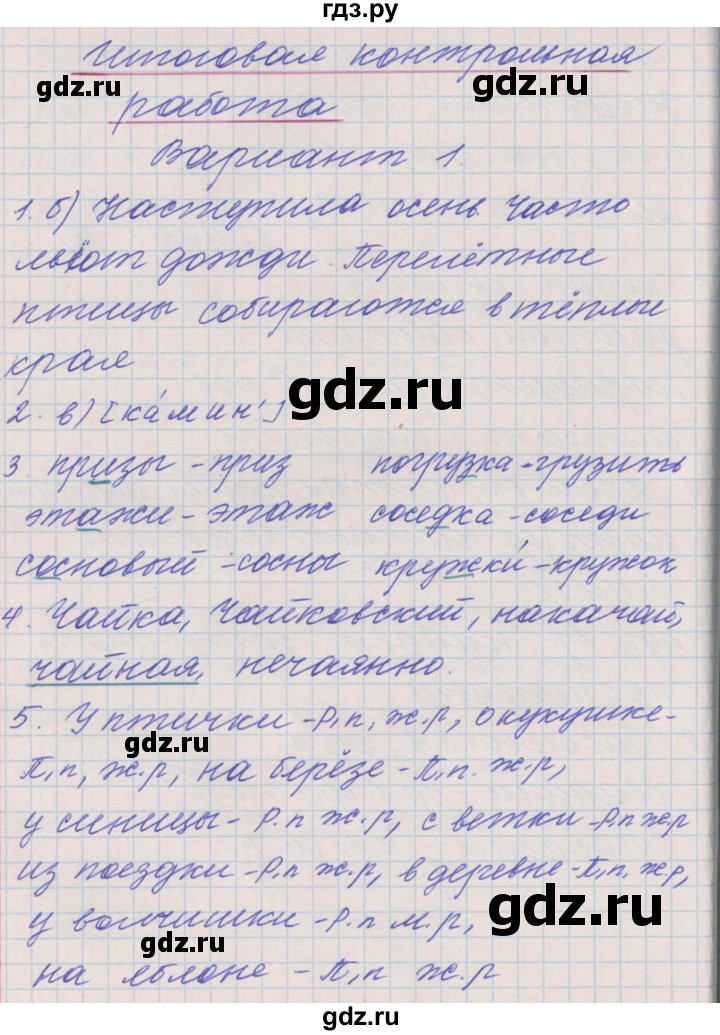 гдз.ру
Итоговая контрольная
gdz.ru gdz.ru
работа
Вариант 1.
1. б) Наступила осень. Часто
льют дожди. Перелётные
птицы собираются в тёплые
края
gdz.ru
2. в) [ка́мин']
3. призы - приз погрузка - грузить
этажи - этаж соседка - соседи
сосновый - сосны кружки́ - кружок
4. Чайка, Чайковский, накачай,
чайная, нечаянно.
5. У птички - Р.п, ж.р, о кукушке -
gdz.ru
П.п, ж.р, на берёзе - П.п. ж.р,
у синицы - Р.п ж.р, с ветки - Р.п ж.р
из поездки - Р.п ж.р, в деревне - П.п. ж.р,
gdz.ru
у волчишки - Р.п м.р,
gdz.ru
на яблоне - П.п ж.р
gdz.ru